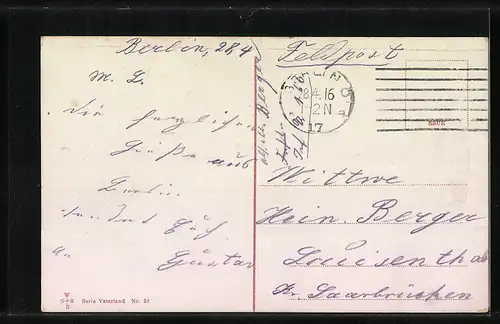 Berlin, 28.4
M. L.
Die herzlichen
Grüße aus
Berlin
sendet Euch
Gustav
Feldpost
BERLIN
28.4.16
2 N
17
Wittwe
Hein. Berger
Louisenthal
Kr. Saarbrücken
W
S+N
B
Serie Vaterland No. 26